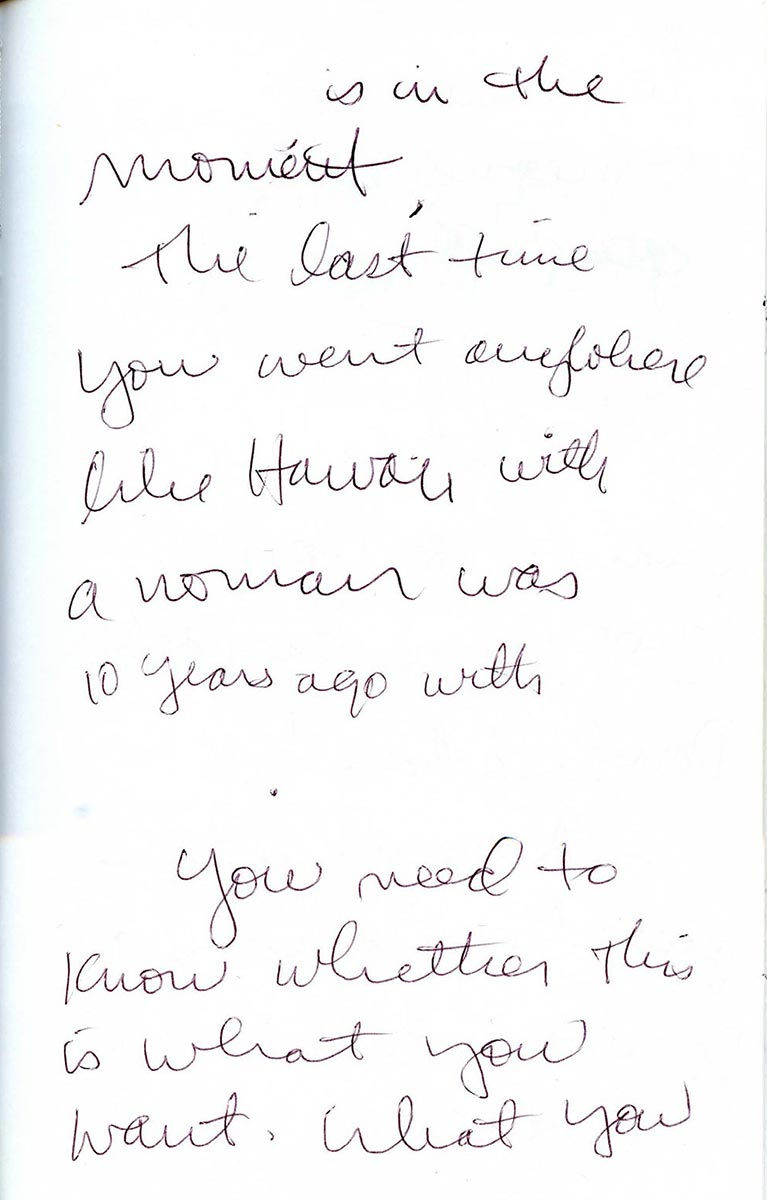 is in the
moment
The last time
you went anywhere
like Hawaii with
a woman was
10 years ago with
.
You need to
know whether this
is what you
want. What you